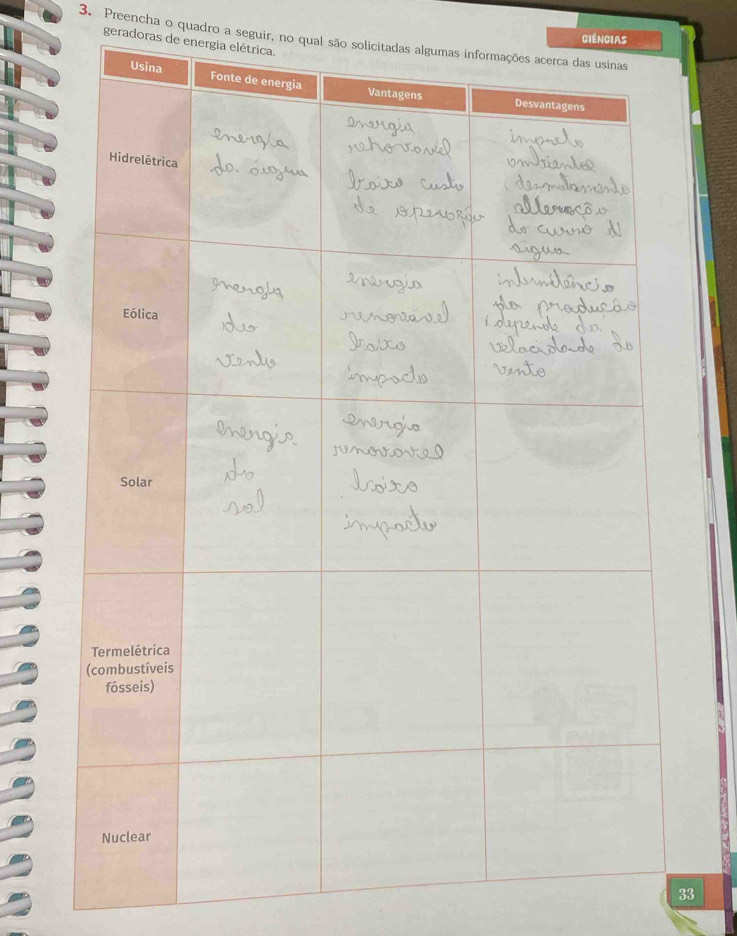 CIÊNCIAS
3. Preencha o quadro a seguir, no qual são solicitadas algumas informações acerca das usinas
geradoras de energia elétrica.
Usina
Fonte de energia
Vantagens
Desvantagens
Hidrelétrica
energia
da água
energia
renovável
baixo custo
de operação
impacto
ambiental
desmatamento
alteração
do curso d
água
Eólica
energia
do
vento
energia
renovável
baixo
impacto
intermitência
da produção
(depende da
velocidade do
vento
Solar
energia
do
sol
energia
renovável
baixo
impacto
Termelétrica
(combustíveis
fósseis)
Nuclear
33